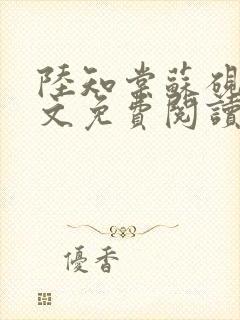 陸知棠蘇硯
文免費閱讀
優香